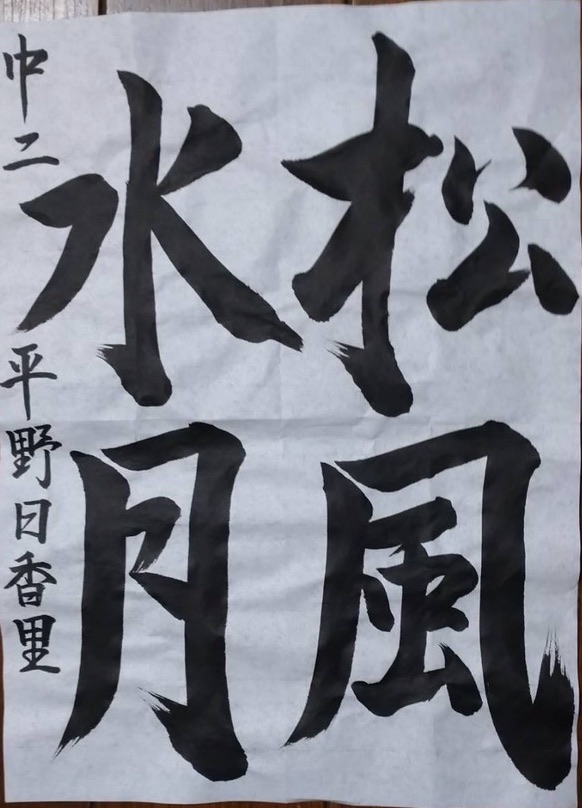 松風
水月
中二 平野日香里